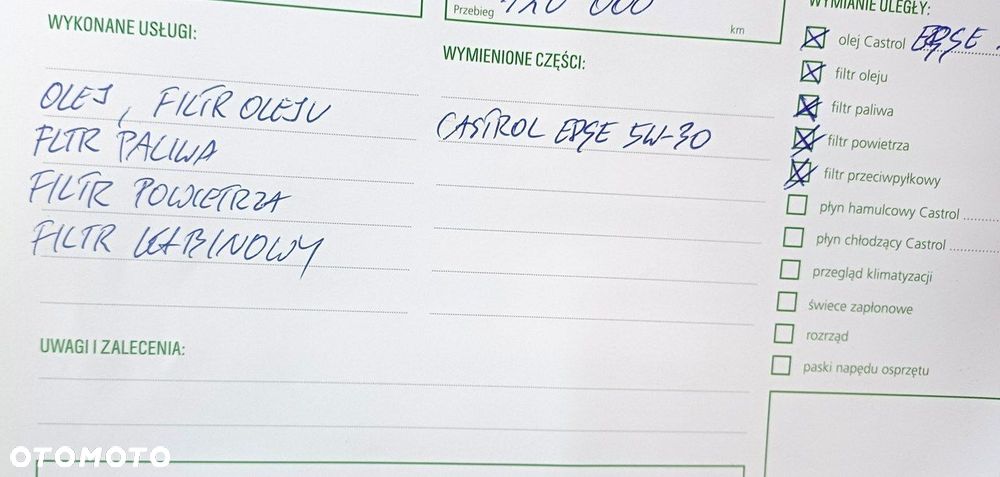 Przebieg 120 000 km
WYKONANE USŁUGI:
OLEJ, FILTR OLEJU
FLTR PALIWA
FILTR POWIETRZA
FILTR KABINOWY
UWAGI I ZALECENIA:
WYMIENIONE CZĘŚCI:
CASTROL EDGE 5W-30
WYMIANIE ULEGŁY:
olej Castrol EDGE
filtr oleju
filtr paliwa
filtr powietrza
filtr przeciwpyłkowy
płyn hamulcowy Castrol
płyn chłodzący Castrol
przegląd klimatyzacji
świece zapłonowe
rozrząd
paski napędu osprzętu
OTOMOTO